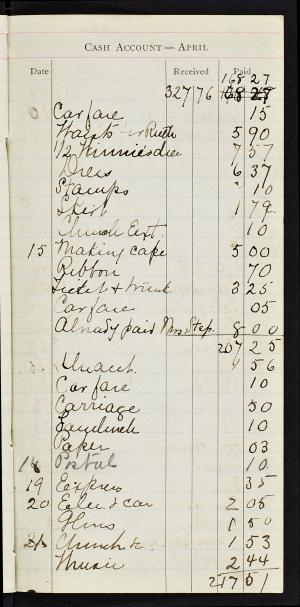 CASH ACCOUNT — APRIL
Date Received Paid
168 27
327 76
Car fare 15
Waists for Ruth 5 90
1/2 Minnies dress 7 57
Dress 6 37
Stamps 10
Skirt 1 79
Church Ext. 10
15 Making cape 5 00
Ribbon 70
Ticket & trunk 3 25
Car fare 05
Already paid Mrs. Step. 8 00
207 25
Unacct. 4 56
Car fare 10
Carriage 50
Lunch 10
Paper 03
14 Postal 10
19 Express 35
20 Elev & car 2 05
Gloves 1 50
21 Church &c. 1 53
Music 2 44
217 51